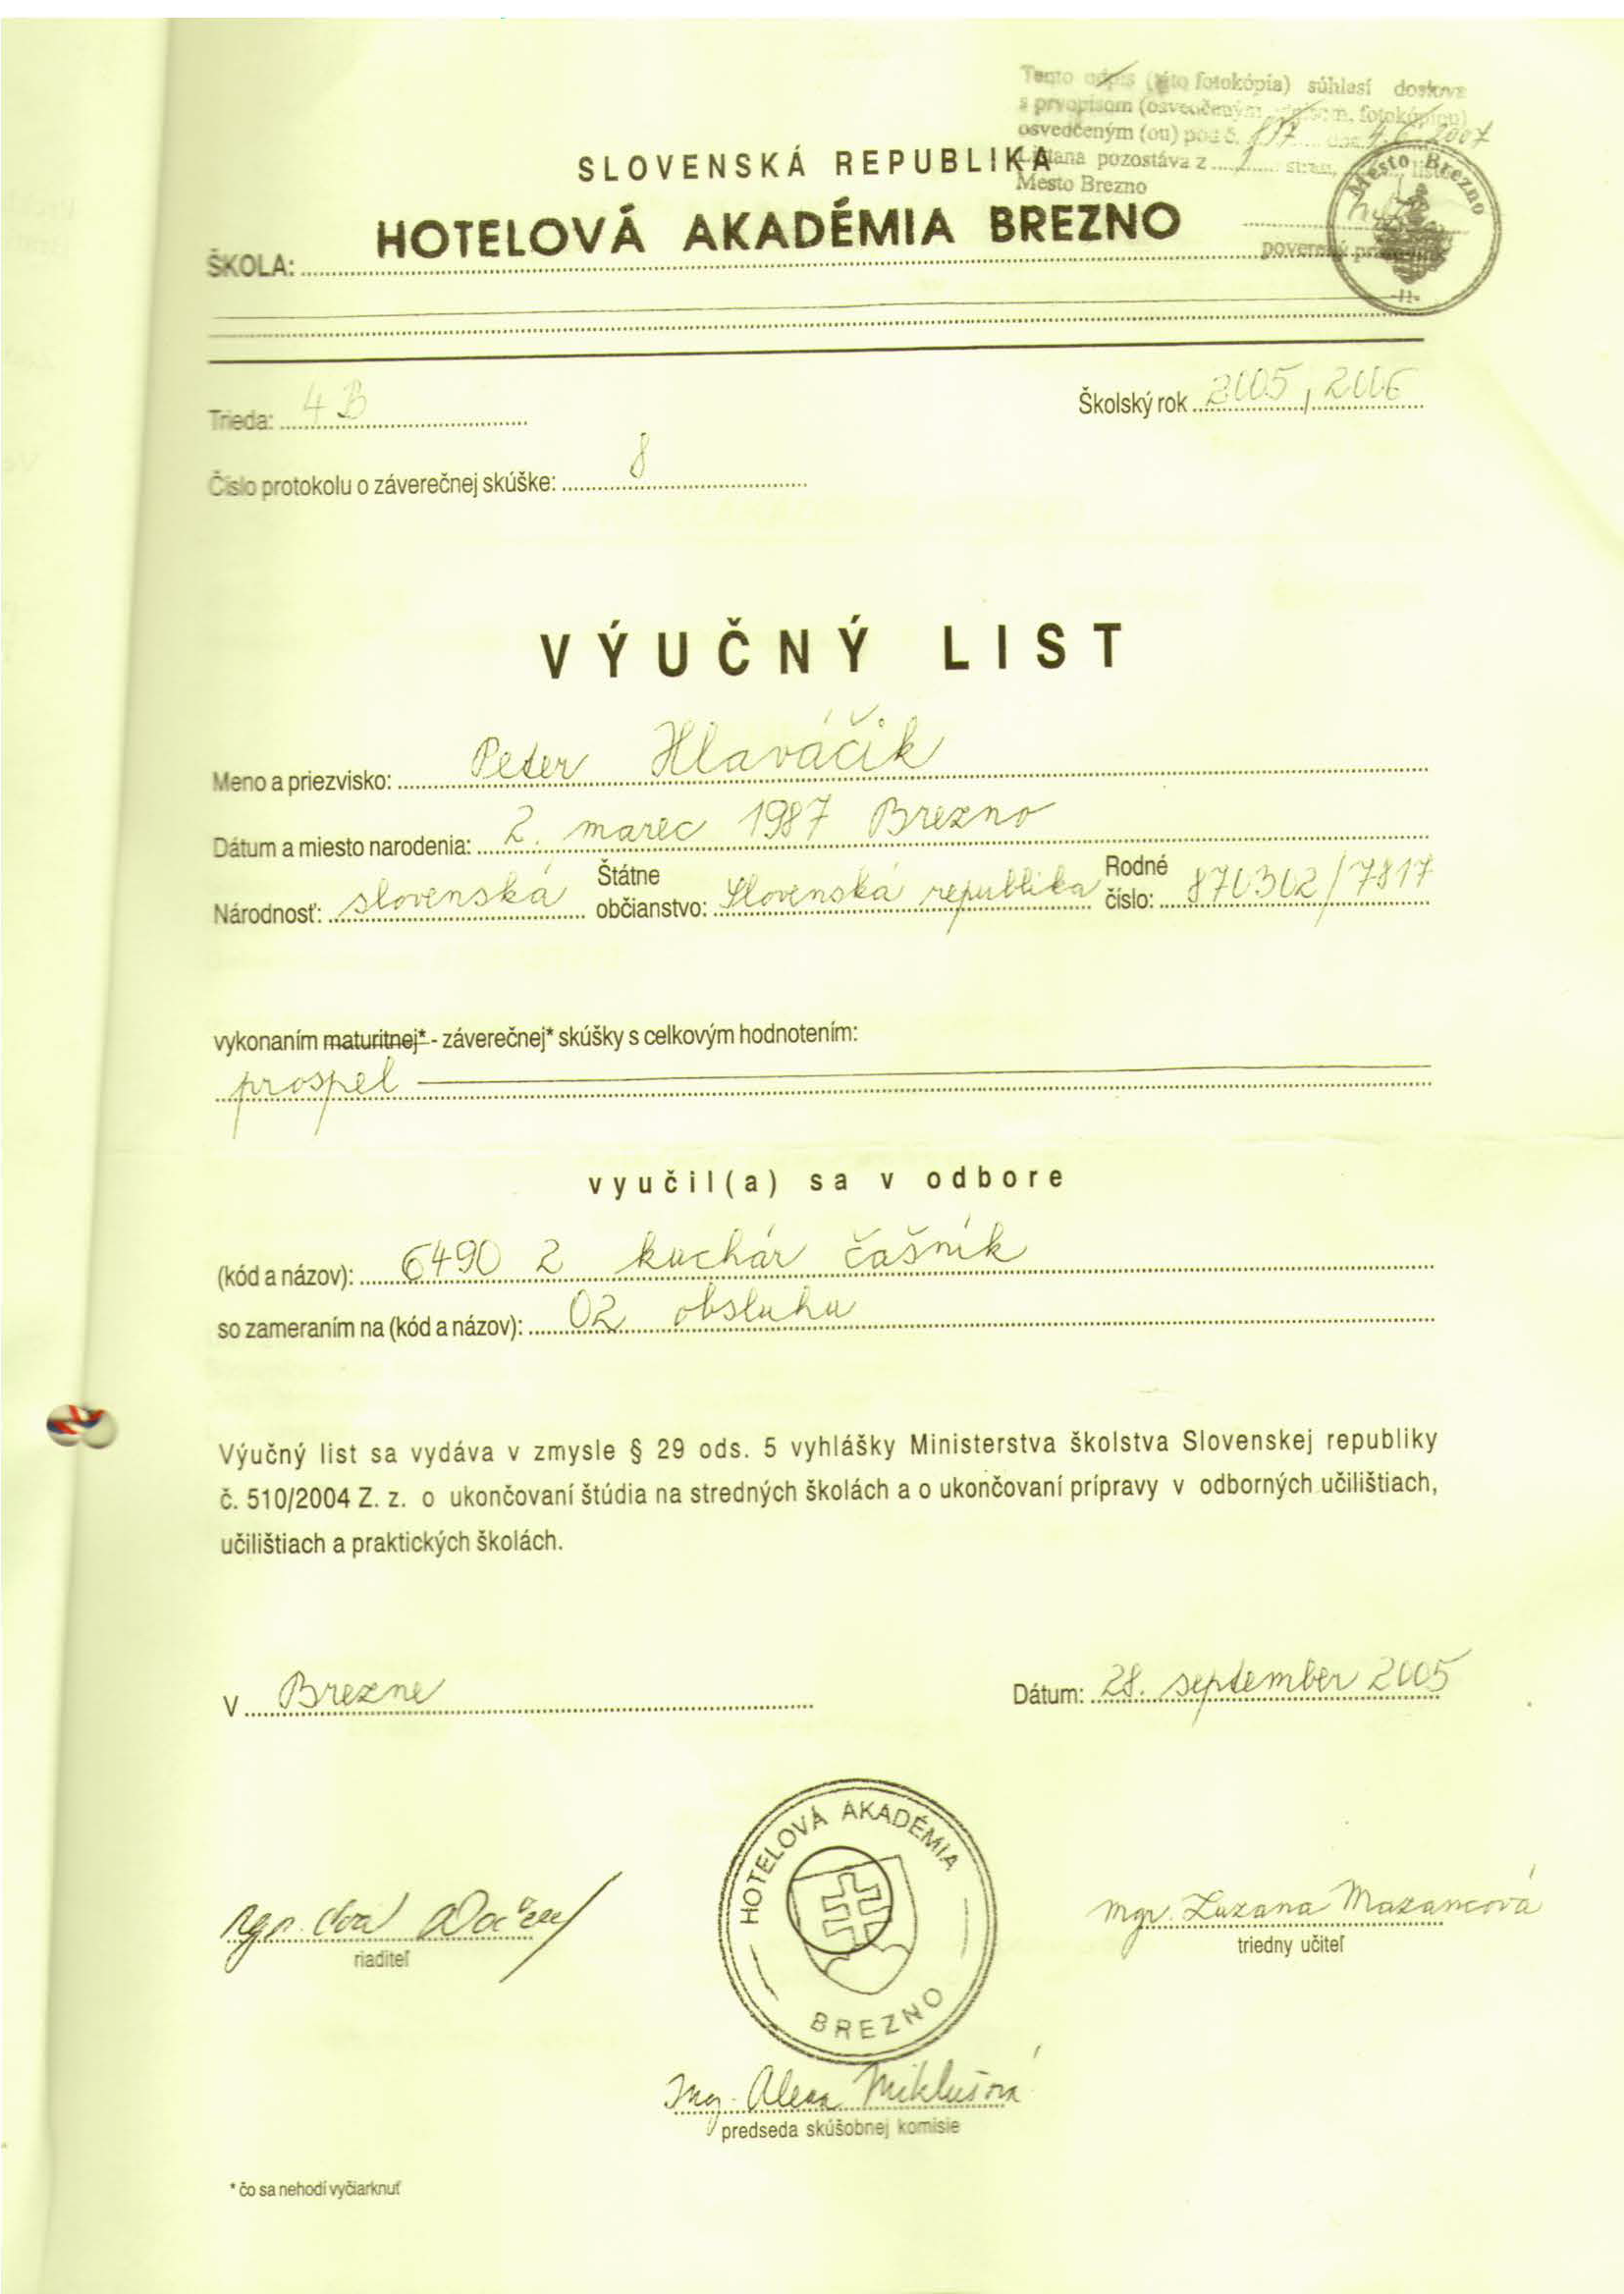 Tento odpis (táto fotokópia) súhlasí doslovne
s prvopisom (osvedčeným odpisom, fotokópiou)
osvedčeným (ou) pod č. 817 dňa 4.6.2007
Listina pozostáva z 1 strán, listov
Mesto Brezno
poverený pracovník
Mesto Brezno
-11-
SLOVENSKÁ REPUBLIKA
ŠKOLA: HOTELOVÁ AKADÉMIA BREZNO
Trieda: 4 B
Školský rok 2005 / 2006
Číslo protokolu o záverečnej skúške: 8
VÝUČNÝ LIST
Meno a priezvisko: Peter Hlaváčik
Dátum a miesto narodenia: 2. marec 1987 Brezno
Národnosť: slovenská Štátne občianstvo: Slovenská republika Rodné číslo: 870302/7817
vykonaním maturitnej* - záverečnej* skúšky s celkovým hodnotením:
prospel
vyučil(a) sa v odbore
(kód a názov): 6490 2 kuchár čašník
so zameraním na (kód a názov): 02 obsluha
Výučný list sa vydáva v zmysle § 29 ods. 5 vyhlášky Ministerstva školstva Slovenskej republiky
č. 510/2004 Z. z. o ukončovaní štúdia na stredných školách a o ukončovaní prípravy v odborných učilištiach,
učilištiach a praktických školách.
V Brezne
Dátum: 28. september 2005
HOTELOVÁ AKADÉMIA
BREZNO
riaditeľ
Mgr. Zuzana Mazancová
triedny učiteľ
Ing. Alena Miklušová
predseda skúšobnej komisie
* čo sa nehodí vyčiarknuť